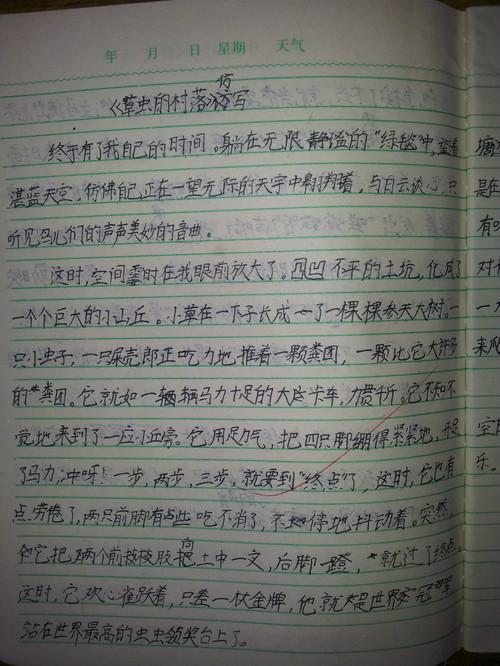 年 月 日 星期 天气
仿
《草虫的村落》写
终于有了我自己的时间。躺在无限静谧的"绿毯"中,望着
湛蓝天空,仿佛自己正在一望无际的天宇中翱翔着,与白云谈心,只
听见鸟儿们的声声美妙的音曲。
这时,空间霎时在我眼前放大了。凹凸不平的土坑,化成了
一个个巨大的小山丘。小草在一下子长成了一棵棵参天大树。一
只小虫子,一只屎壳郎正吃力地推着一颗粪团,一颗比它大许多
的粪团。它就如一辆辆马力十足的大皮卡车,力贯千斤。它不知不
觉地来到了一座小丘旁。它用足力气,把四只脚绷得紧紧地,开足
了马力,冲呀!一步,两步,三步,就要到"终点"了,这时,它也有
点劳倦了,两只前脚有些吃不消了,不停地抖动着。突然,
它把两个前肢向土中一叉,后脚一蹬,就过了终点。
这时,它欢心雀跃着,只差一枚金牌,他就是世界冠军,
站在世界最高的虫虫领奖台上了。
塘
是
有
对
一
来
空
乐。